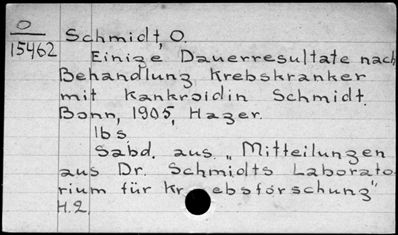 O
15462
Schmidt, O.
Einige Dauerresultate nach
Behandlung Krebskranker
mit Kankroidin Schmidt.
Bonn, 1905, Hager.
16 s.
Sabd. aus „Mitteilungen
aus Dr. Schmidts Laborato-
rium für Kr ebsforschung"
H.2.